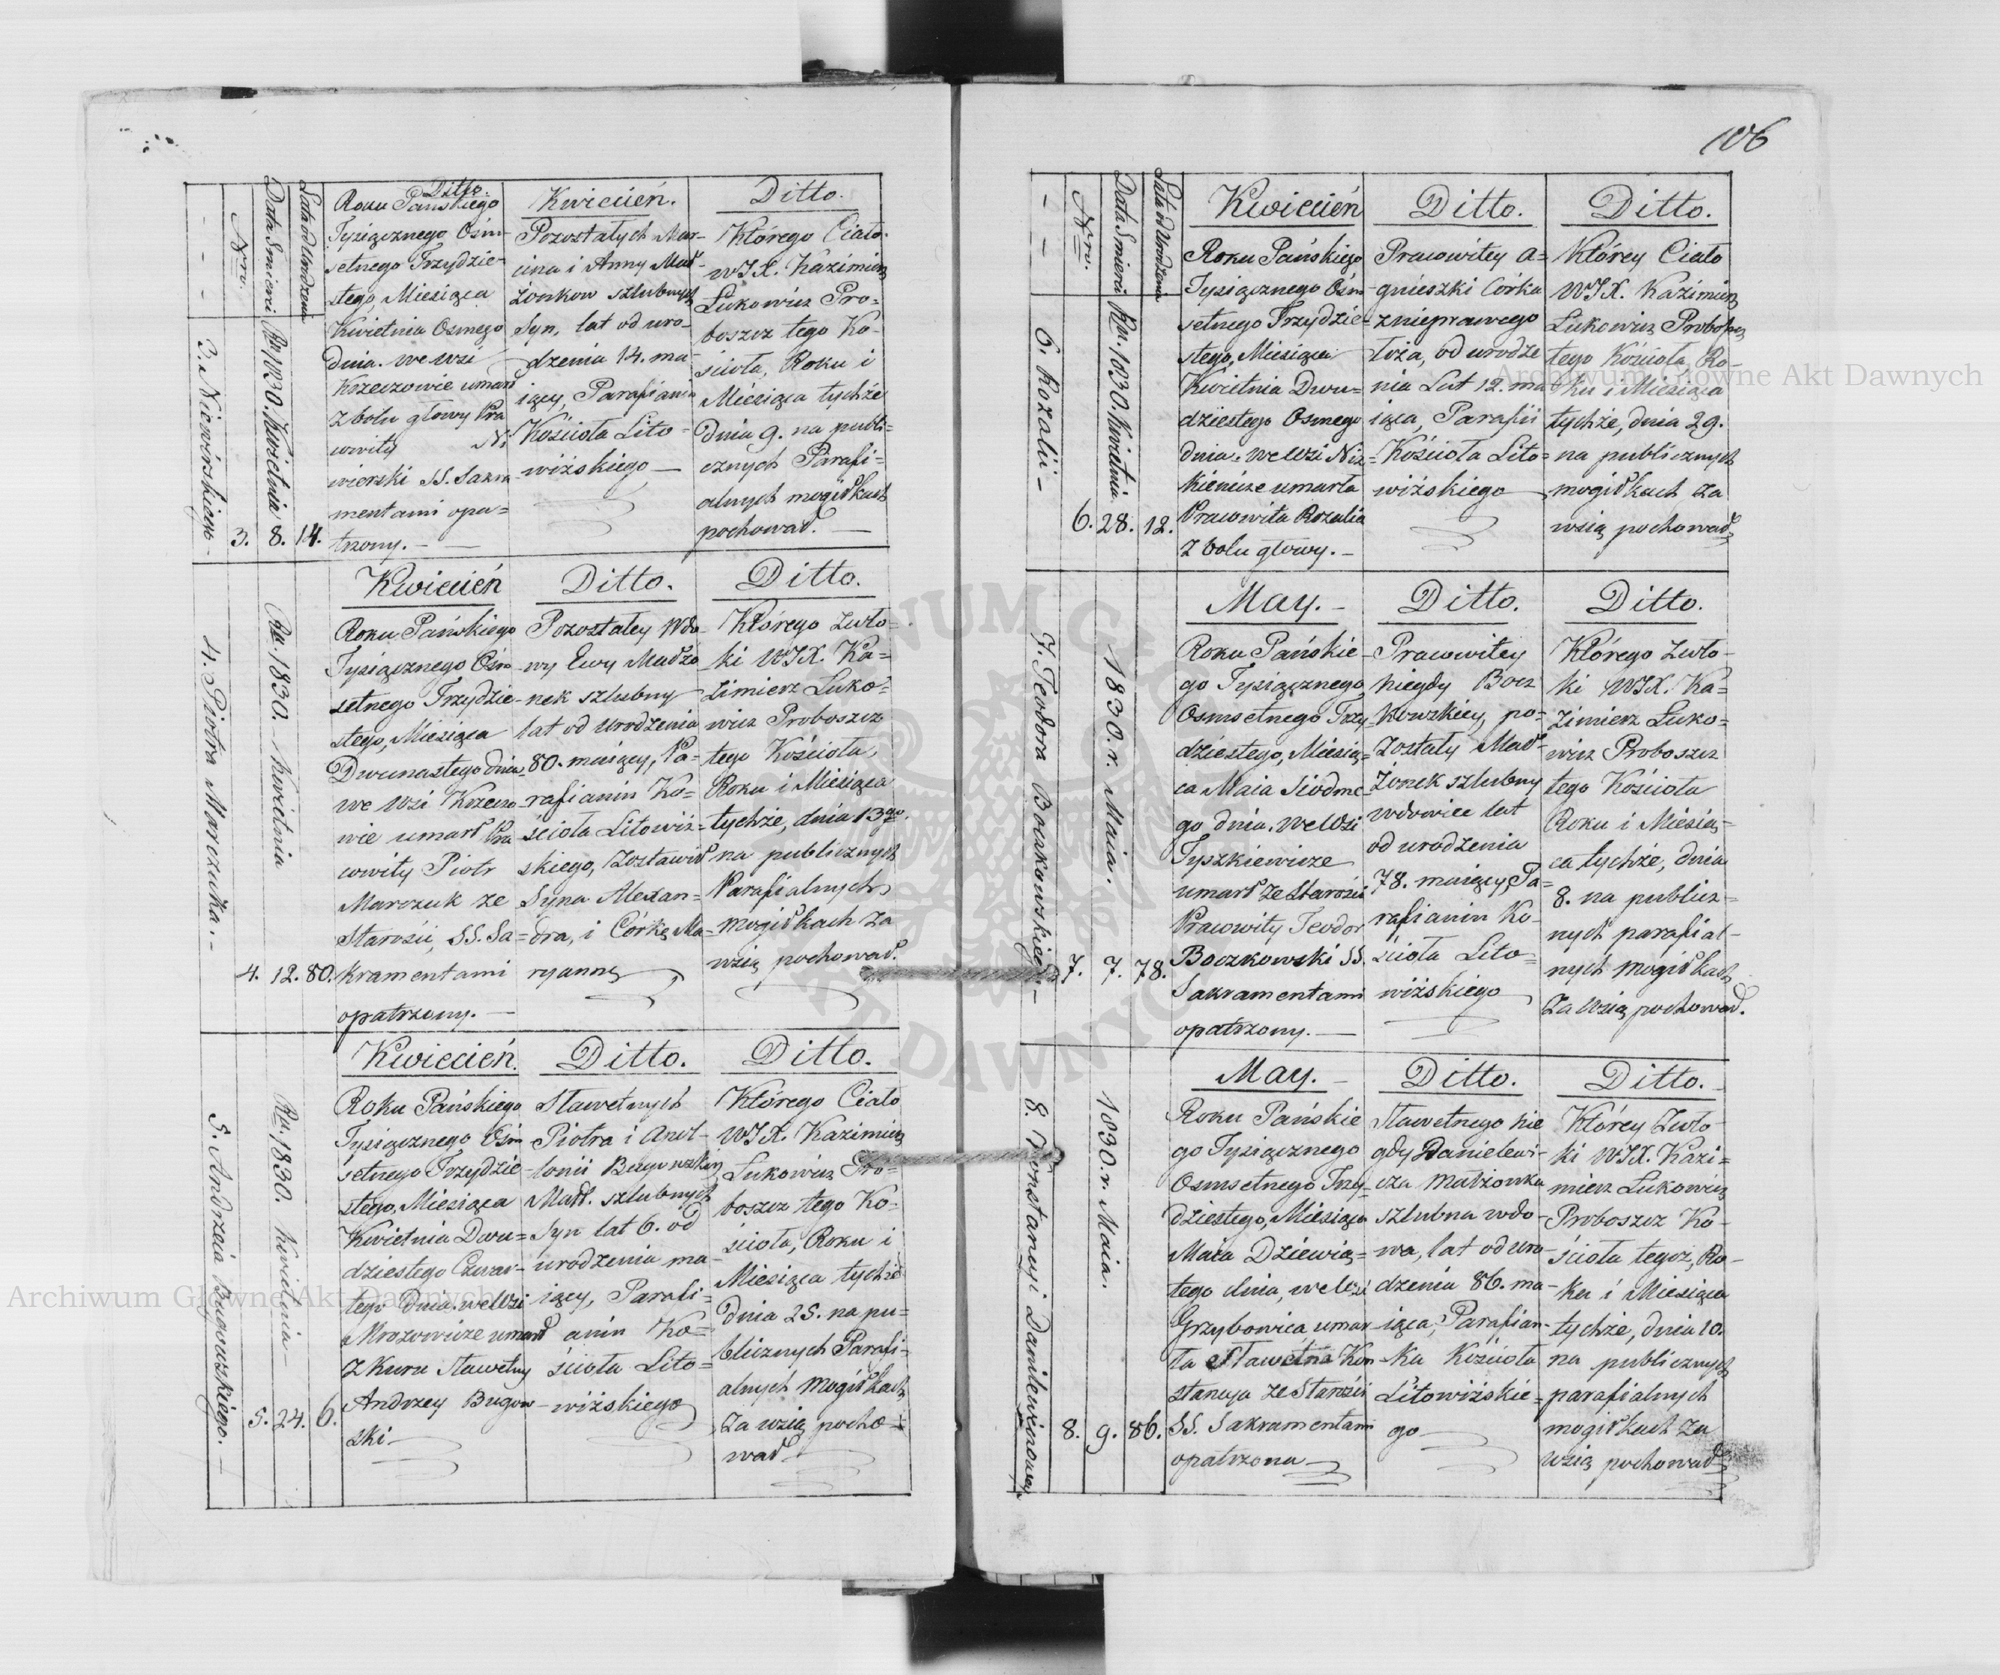 106
Nro.
Data Śmierci
Lata od Urodzenia
Ditto.
Kwiecień.
Ditto.
3. Niewirskiego.
Ru. 1830. Kwietnia
3. 8. 14.
Roku Pańskiego
Tysiącznego Ośm-
setnego Trzydzie-
stego, Miesiąca
Kwietnia Osmego
Dnia. we wsi
Krzeczowie umarł
z bolu głowy Pra
cowity Ni
wierski SS. Sakra
mentami opa=
trzony.
Pozostałych Mar-
cina i Anny Mał-
żonkow szlubnych
Syn, lat od uro-
dzenia 14. ma-
iący, Parafianin
Kościoła Lito-
wiżskiego
Którego Ciało
WJX. Kazimierz
Lukowicz Pro-
boszcz tego Ko-
ścioła, Roku i
Miesiąca tychże
Dnia 9. na publi-
cznych Parafi=
alnych mogiłkach
pochował.
Kwiecień
Ditto.
Ditto.
4. Piotra Marczuka.
Ru. 1830. Kwietnia
4. 12. 80.
Roku Pańskiego
Tysiącznego Ośm
setnego Trzydzie-
stego, Miesiąca
Dwunastego dnia
we wsi Krzeczo-
wie umarł Pra
cowity Piotr
Marczuk ze
Starości, SS. Sa=
kramentami
opatrzony.
Pozostałey Wdo-
wy Ewy Małżo
nek szlubny
lat od urodzenia
80. maiący, Pa-
rafianin Ko-
ścioła Litowiż=
skiego, zostawił
Syna Alexan-
dra, i Córkę Ma-
ryannę
Którego zwło=
ki WJX. Ka=
zimierz Luko=
wicz Proboszcz
tego Kościoła,
Roku i Miesiąca
tychże, dnia 13go.
na publicznych
Parafialnych
mogiłkach za
wsią pochował.
Kwiecień.
Ditto.
Ditto.
5. Andrzeia Bugowskiego.
Ru. 1830. Kwietnia
5. 24. 6.
Roku Pańskiego
Tysiącznego Ośm
setnego Trzydzie-
stego, Miesiąca
Kwietnia Dwu=
dziestego Czwar-
tego Dnia. we Wsi
Mrozowicze umarł
z Kuru Sławetny
Andrzey Bugow-
ski
Sławetnych
Piotra i Apol-
lonii Bugowskich
Małż. szlubnych
Syn lat 6. od
urodzenia ma-
iący, Parafi-
anin Ko=
ścioła Lito=
wiżskiego
Którego Ciało
WJX. Kazimierz
Lukowicz Pro=
boszcz tego Ko-
ścioła, Roku i
Miesiąca tychże
Dnia 25. na pu=
blicznych Parafi-
alnych mogiłkach
za wsią pocho=
wał
Nro.
Data Śmierci
Lata od Urodzenia
Kwiecień
Ditto.
Ditto.
6. Rozalii
Ru. 1830. Kwietnia
6. 28. 12.
Roku Pańskiego
Tysiącznego Ośm
setnego Trzydzie-
stego, Miesiąca
Kwietnia Dwu=
dziestego Osmego
dnia. we Wsi Niz=
kienicze umarła
Pracowita Rozalia
z bolu głowy.
Pracowitey A=
gnieszki Córka
z nieprawego
łoża, od urodze
nia Lat 12. ma
iąca, Parafii
Kościoła Lito=
wiżskiego
Którey Ciało
WJX. Kazimierz
Lukowicz Proboszcz
tego Kościoła, Ro-
ku i Miesiąca
tychże, dnia 29.
na publicznych
mogiłkach za
wsią pochował
May.
Ditto.
Ditto.
7. Teodora Boczkowskiego
1830. r. Maia.
7. 7. 78.
Roku Pańskie-
go Tysiącznego,
Osmsetnego Trzy
dziestego, Miesią=
ca Maia Siódme-
go dnia. we Wsi
Tyszkiewicze
umarł ze Starości
Pracowity Teodor
Boczkowski SS.
Sakramentami
opatrzony.
Pracowitey
niegdy Bocz
kowskiey, po=
zostały Mał-
żonek szlubny
wdowiec lat
od urodzenia
78. maiący, Pa=
rafianin Ko-
ścioła Lito=
wiżskiego
Którego zwło-
ki WJX. Ka=
zimierz Luko=
wicz Proboszcz
tego Kościoła
Roku i Miesią=
ca tychże, dnia
8. na publicz-
nych parafial-
nych mogiłkach
za Wsią pochował.
May.
Ditto.
Ditto.
8. Konstancyi Danilewiczowey
1830. r. Maia.
8. 9. 86.
Roku Pańskie
go Tysiącznego
Osmsetnego Trzy-
dziestego, Miesiąca
Maia Dziewią=
tego dnia, we Wsi
Grzybowica, umar
ła Sławetna Kon
stancya ze Starości
SS. Sakramentami
opatrzona
Sławetnego nie
gdy Danielewi-
cza Małżonka
szlubna wdo-
wa, lat od uro-
dzenia 86. ma-
iąca, Parafian-
ka Kościoła
Litowiżskie=
go
Którey Zwło-
ki WJX. Kazi=
mierz Lukowicz
Proboszcz Ko-
ścioła tegoż, Ro-
ku i Miesiąca
tychże, dnia 10.
na publicznych
parafialnych
mogiłkach za
wsią pochował
Archiwum Główne Akt Dawnych
Archiwum Główne Akt Dawnych